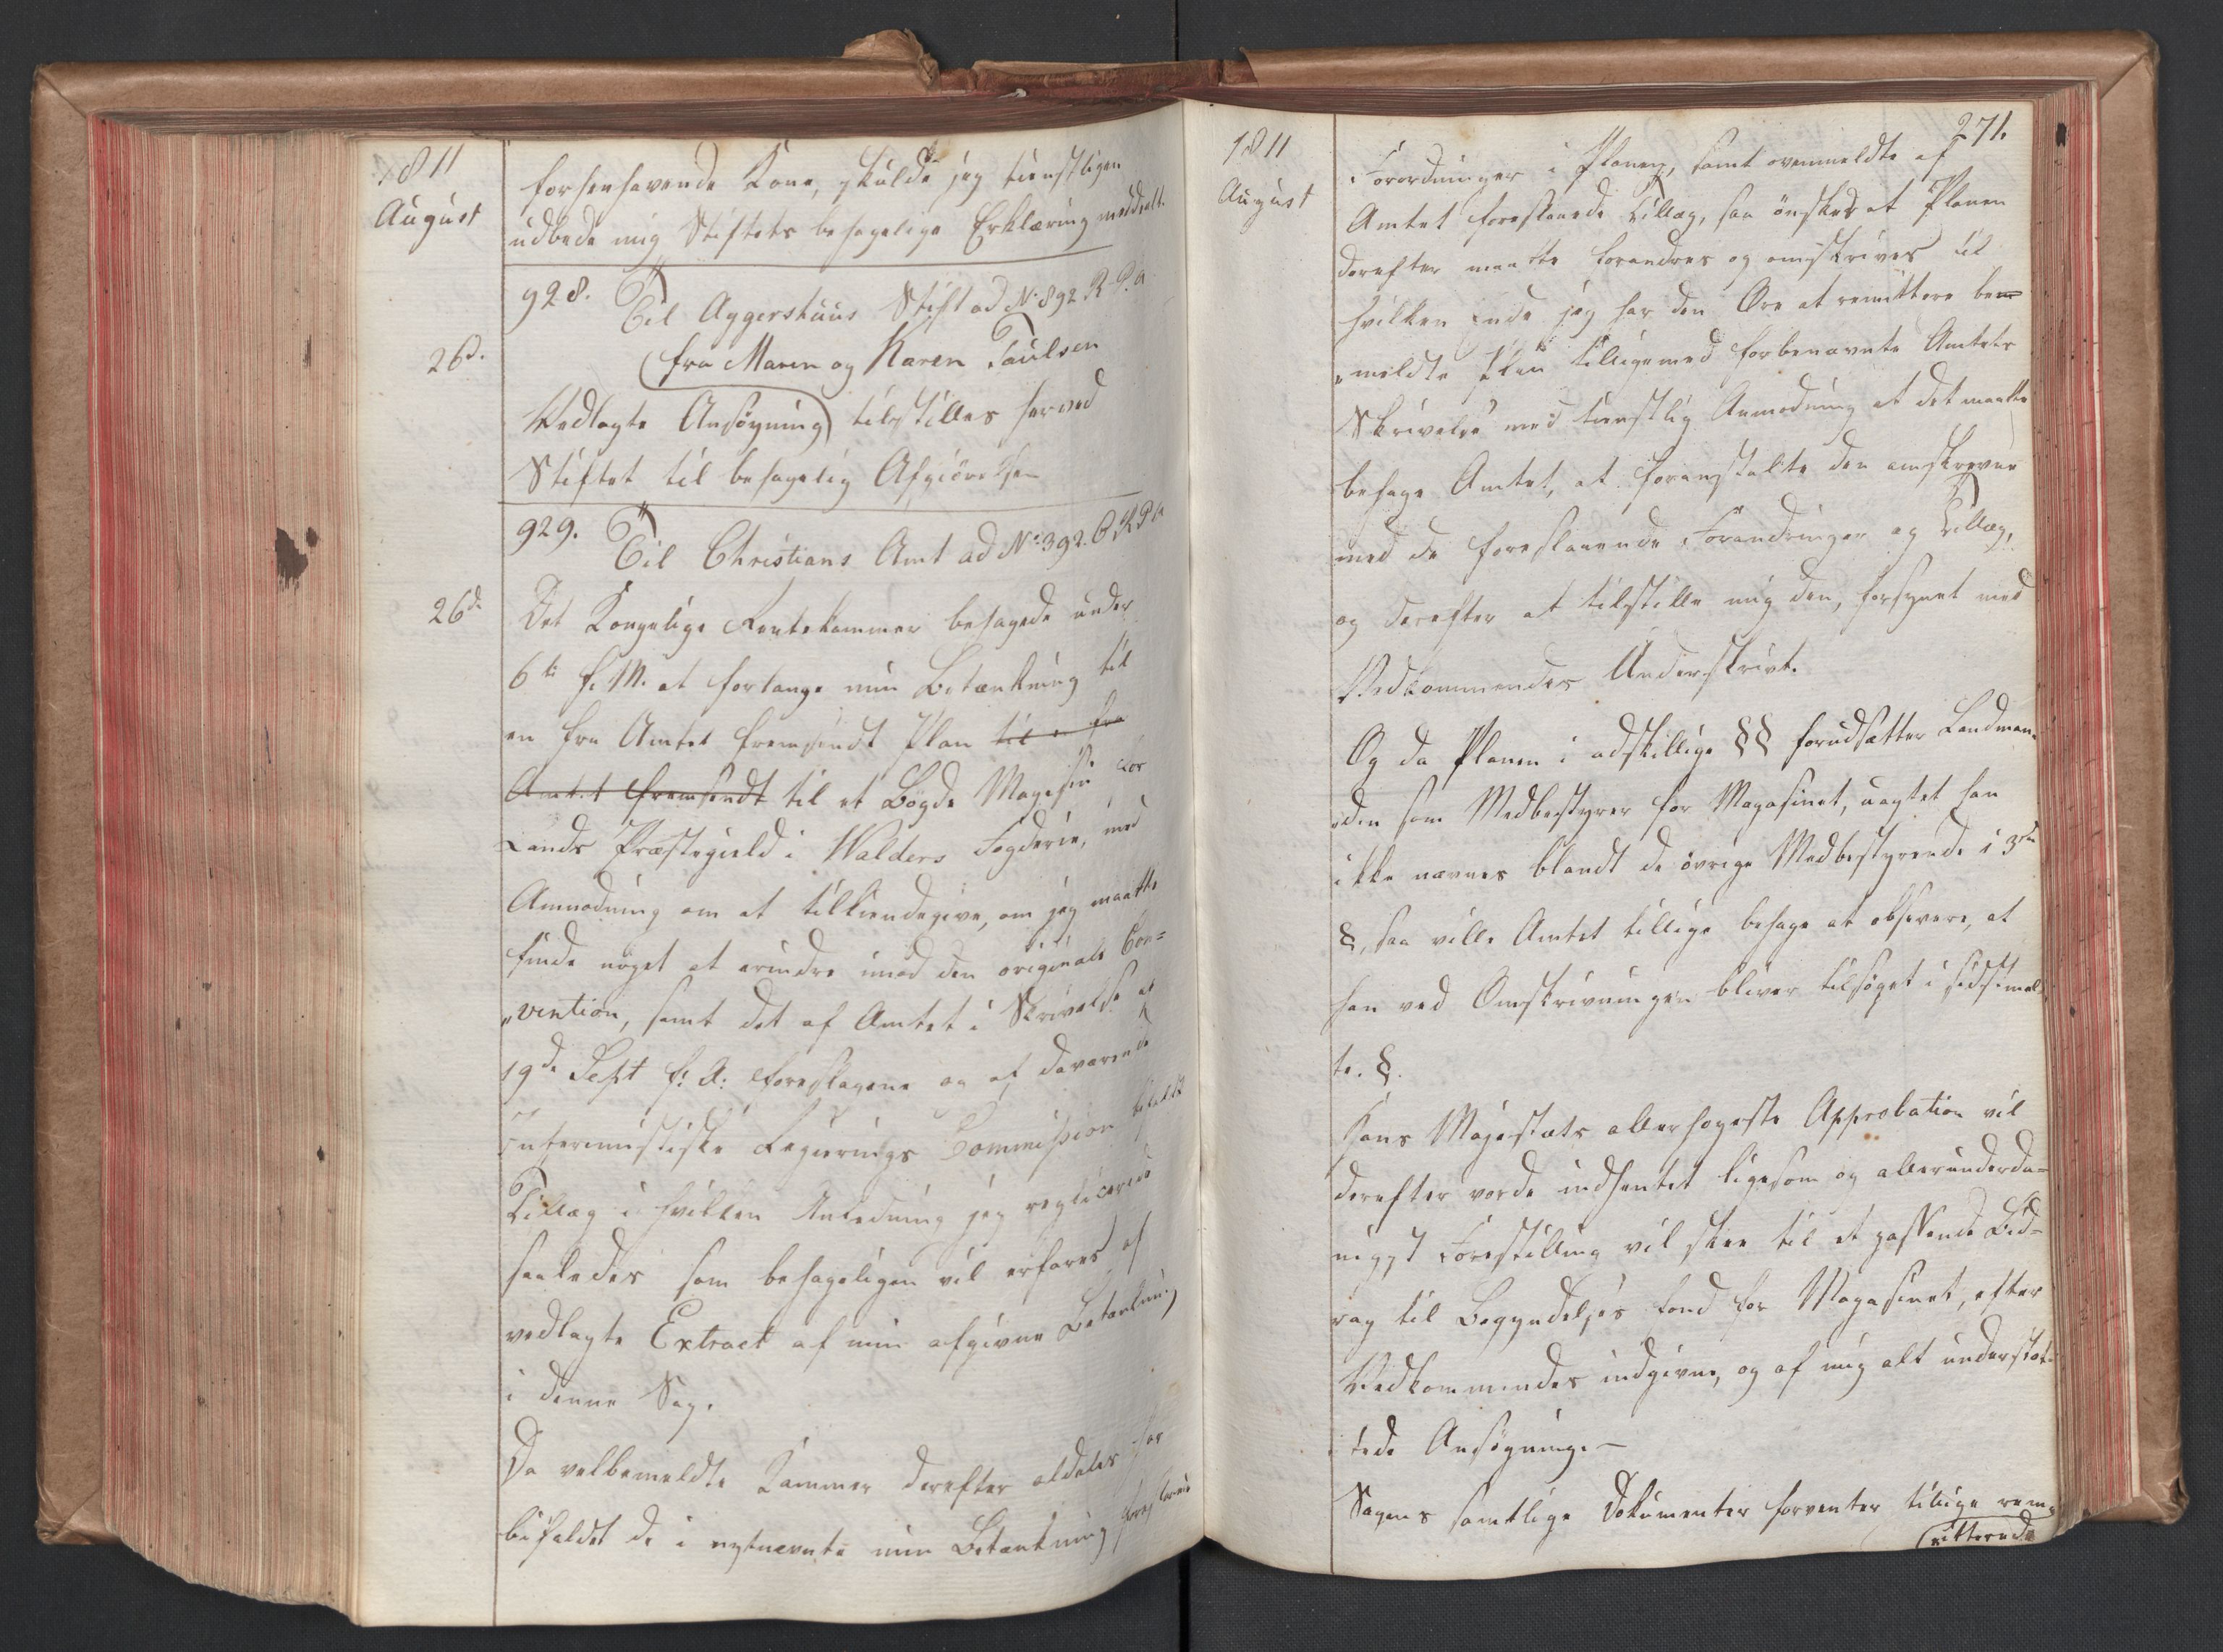 1811
August
forhenhavende Kone, skulde jeg tienstligen
udbede mig Stiftets behagelige Erklæring meddeelt.
928. Til Aggershuus Stift ad No 892 R. P. a
26d.
(fra Maren og Karen Paulsen
Vedlagte Ansøgning) tilstilles herved
Stiftet til behagelig Afgiørelse
929. Til Christians Amt ad No 392. R P a
26d.
Det Kongelige Rentekammer behagede under
6te f. M. at forlange min Betænkning til
en fra Amtet fremsendt Plan til en fra
Amtet fremsendt til et Bøgde Magasin for
Lands Præstegield i Walders Fogderie, med
Anmodning om at tilkiendegive, om jeg maatte
finde noget at erindre imod den originale Con=
„vention, samt det af Amtet i Skrivelse af
19de Sept f: A: foreslagene og af daværende
Interimistiske Regierings Commission bifaldt
Tillæg i hvilken Anledning jeg replicerede
saaledes som behageligen vil erfares af
vedlagte Extract af min afgivne Betænkning
i denne Sag.
Da velbemeldte Kammer derefter aldeles har
bifaldet de i nysnævnte min Betænkning foreslaaede
1811
August
271.
Forordninger i Planen, samt ovenmeldte af
Amtet foreslaaede Tillæg, saa ønskes at Planen
derefter maatte forandres og omskrives til
hvilken Ende jeg har den Ære at remittere bem
„meldte Plan tilligemed forbenævnte Amtets
Skrivelse med tienstlig Anmodning at det maatte
behage Amtet, at foranstalte den omskreven
med de foreslaaende Forandringer og Tillæg,
og derefter at tilstille mig den, forsynet med
Vedkommendes Underskrivt.
Og da Planen i adskillige §§ forudsætter Landman=
„den som Medbestyrer for Magasinet, uagtet han
ikke nævnes blandt de øvrige Medbestyrende i 3die
§, saa ville Amtet tillige behage at observere, at
han ved Omskrivningen bliver tilføyet i sidstmeld
te. §.
Hans Majestæts allerhøyeste Approbation vil
derefter vorde indhentet ligesom og allerunderda=
nigst Forestilling vil skee til et passende Bid=
rag til Begyndelses Fond for Magasinet, efter
Vedkommendes indgivne, og af mig alt understøt=
tede Ansøgning.—
Sagens samtlige Dokumenter forventer tillige rem=
(itterede